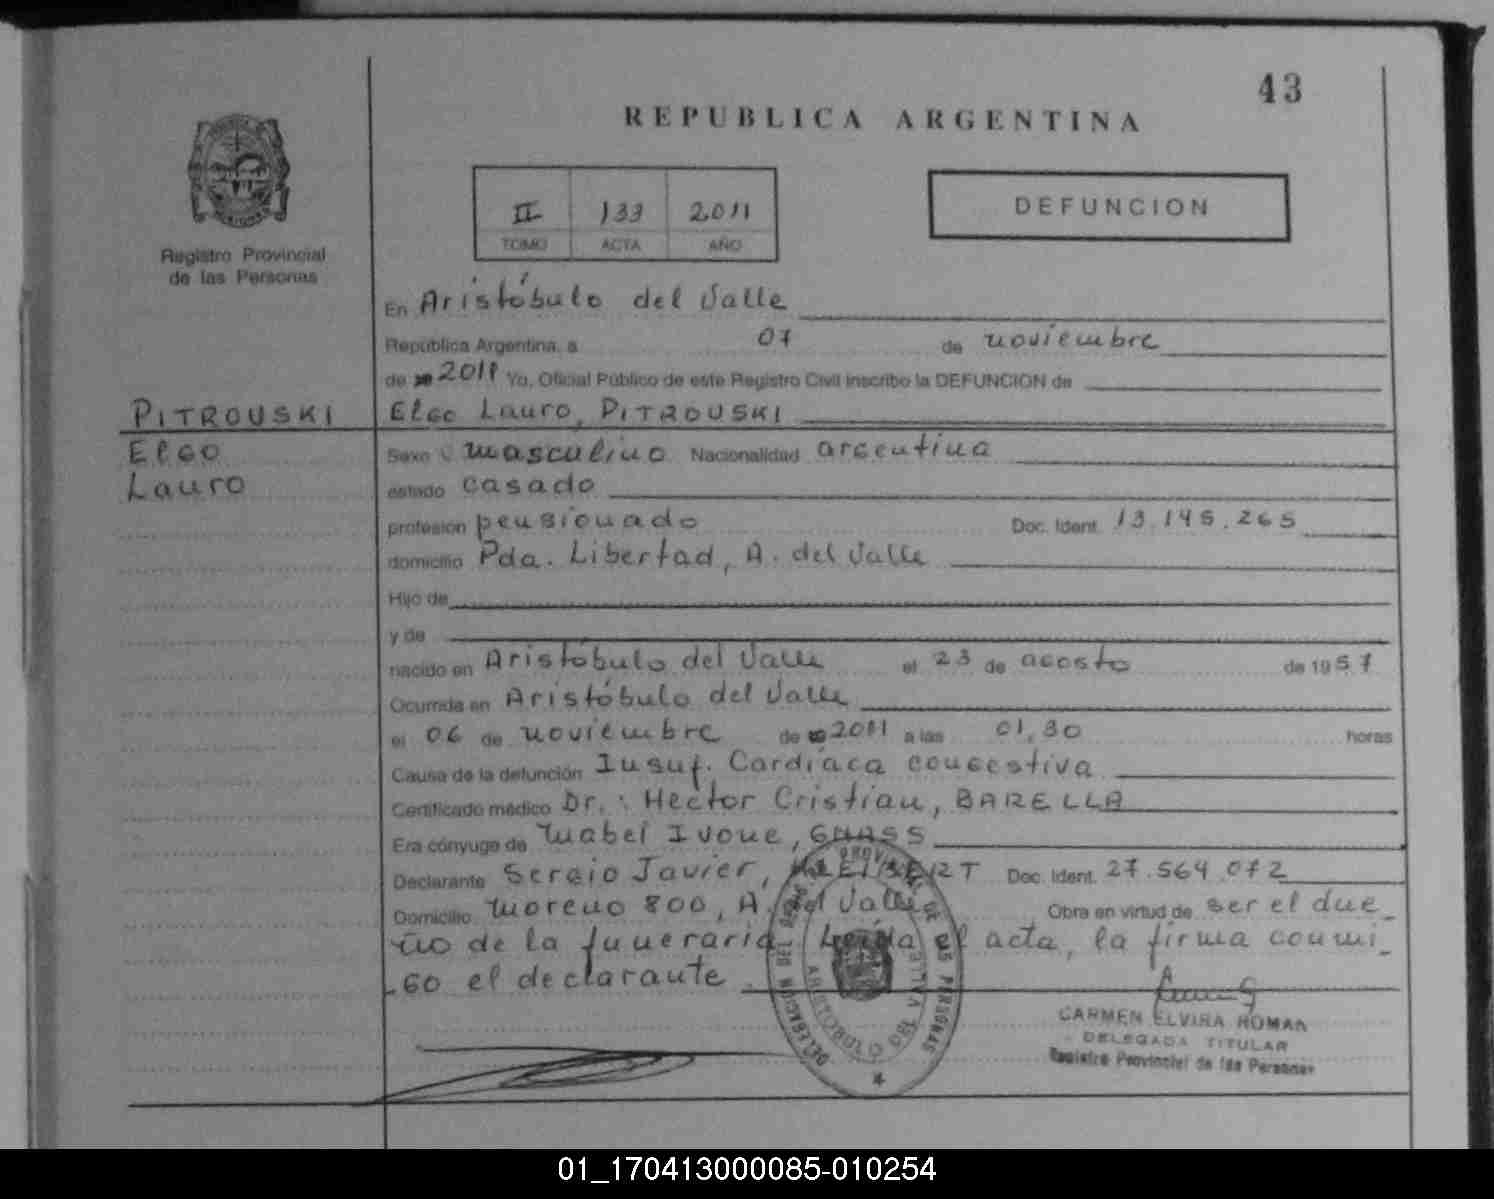 43
REPUBLICA ARGENTINA
II 133 2011
TOMO ACTA AÑO
DEFUNCION
Registro Provincial
de las Personas
En Aristóbulo del Valle
República Argentina, a 07 de noviembre
de 2011 Yo, Oficial Público de este Registro Civil inscribo la DEFUNCION de
PITROUSKI
Elgo Lauro, PITROUSKI
Elgo
Lauro
Sexo masculino Nacionalidad argentina
estado casado
profesión pensionado Doc. Ident. 13.145.265
domicilio Pda. Libertad, A. del Valle
Hijo de
y de
nacido en Aristóbulo del Valle el 23 de agosto de 1957
Ocurrida en Aristóbulo del Valle
el 06 de noviembre de 2011 a las 01,30 horas
Causa de la defunción Insuf. Cardíaca congestiva
Certificado médico Dr.: Hector Cristian, BARELLA
Era cónyuge de Mabel Ivone,
Declarante Sergio Javier, Doc. Ident. 27.564.072
Domicilio Moreno 800, A. del Valle Obra en virtud de ser el due_
ño de la funeraria. Leída el acta, la firma conmi_
_go el declarante.
DELEGACION DEL REGISTRO PROVINCIAL DE LAS PERSONAS
ARISTOBULO DEL VALLE
CARMEN ELVIRA ROMAN
DELEGADA TITULAR
Registro Provincial de las Personas
01_170413000085-010254